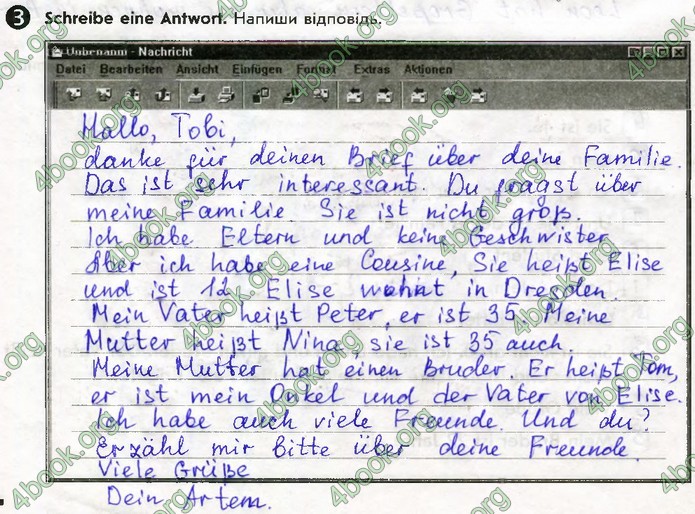 3 Schreibe eine Antwort. Напиши відповідь.
Unbenannt - Nachricht
Datei Bearbeiten Ansicht Einfügen Format Extras Aktionen
Hallo, Tobi,
danke für deinen Brief über deine Familie.
Das ist sehr interessant. Du fragst über
meine Familie. Sie ist nicht groß.
Ich habe Eltern und keine Geschwister.
Aber ich habe eine Cousine, Sie heißt Elise
und ist 12. Elise wohnt in Dresden.
Mein Vater heißt Peter, er ist 35. Meine
Mutter heißt Nina, sie ist 35 auch.
Meine Mutter hat einen Bruder. Er heißt Tom,
er ist mein Onkel und der Vater von Elise.
Ich habe auch viele Freunde. Und du?
Erzähl mir bitte über deine Freunde.
Viele Grüße
Dein Artem.
4book.org